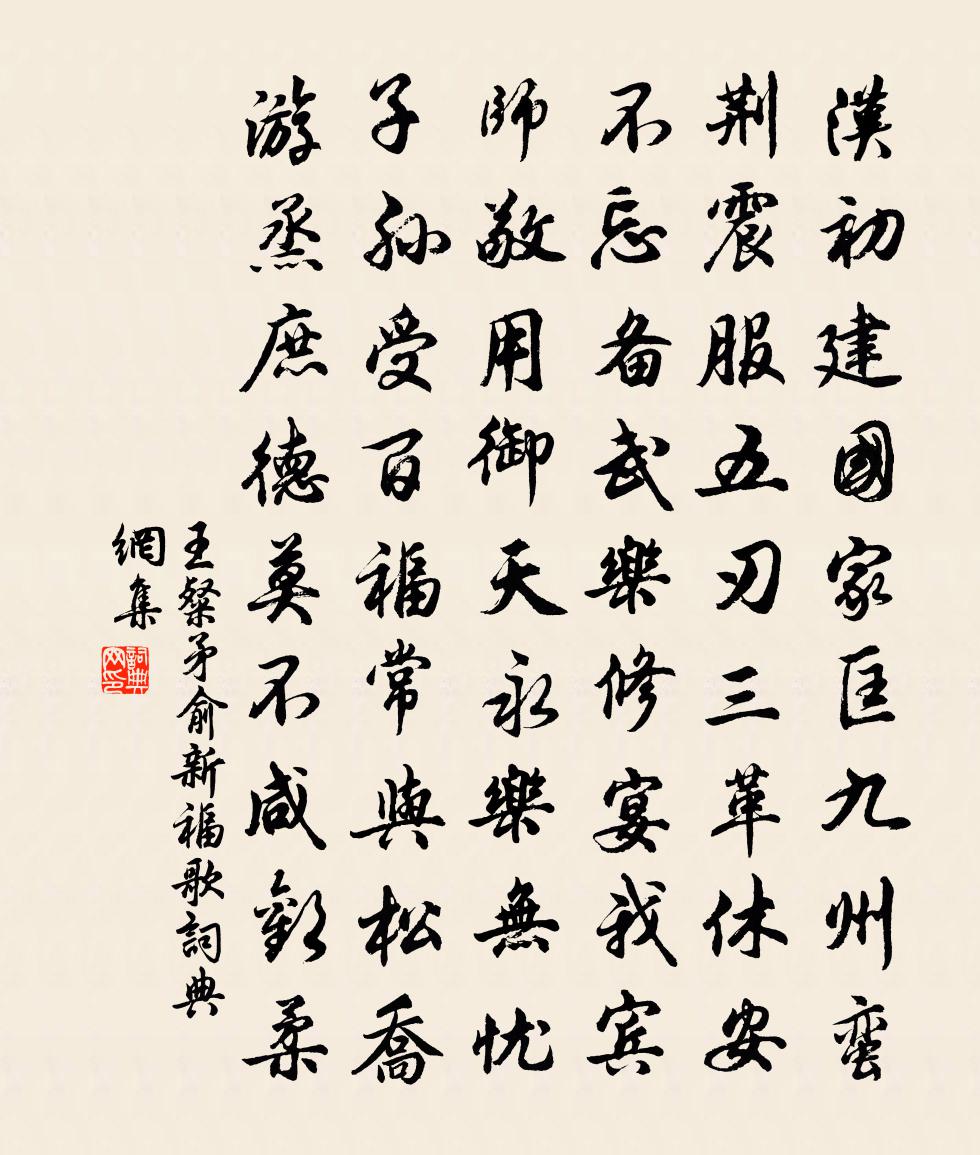 漢初建國家匡九州蛮
荆震服五刃三革休安
不忘备武樂修宴我宾
師敬用御天永樂無忧
子孙受百福常與松喬
游烝庶德莫不咸歡柔
王粲矛俞新福歌詞典
網集
詞典网印